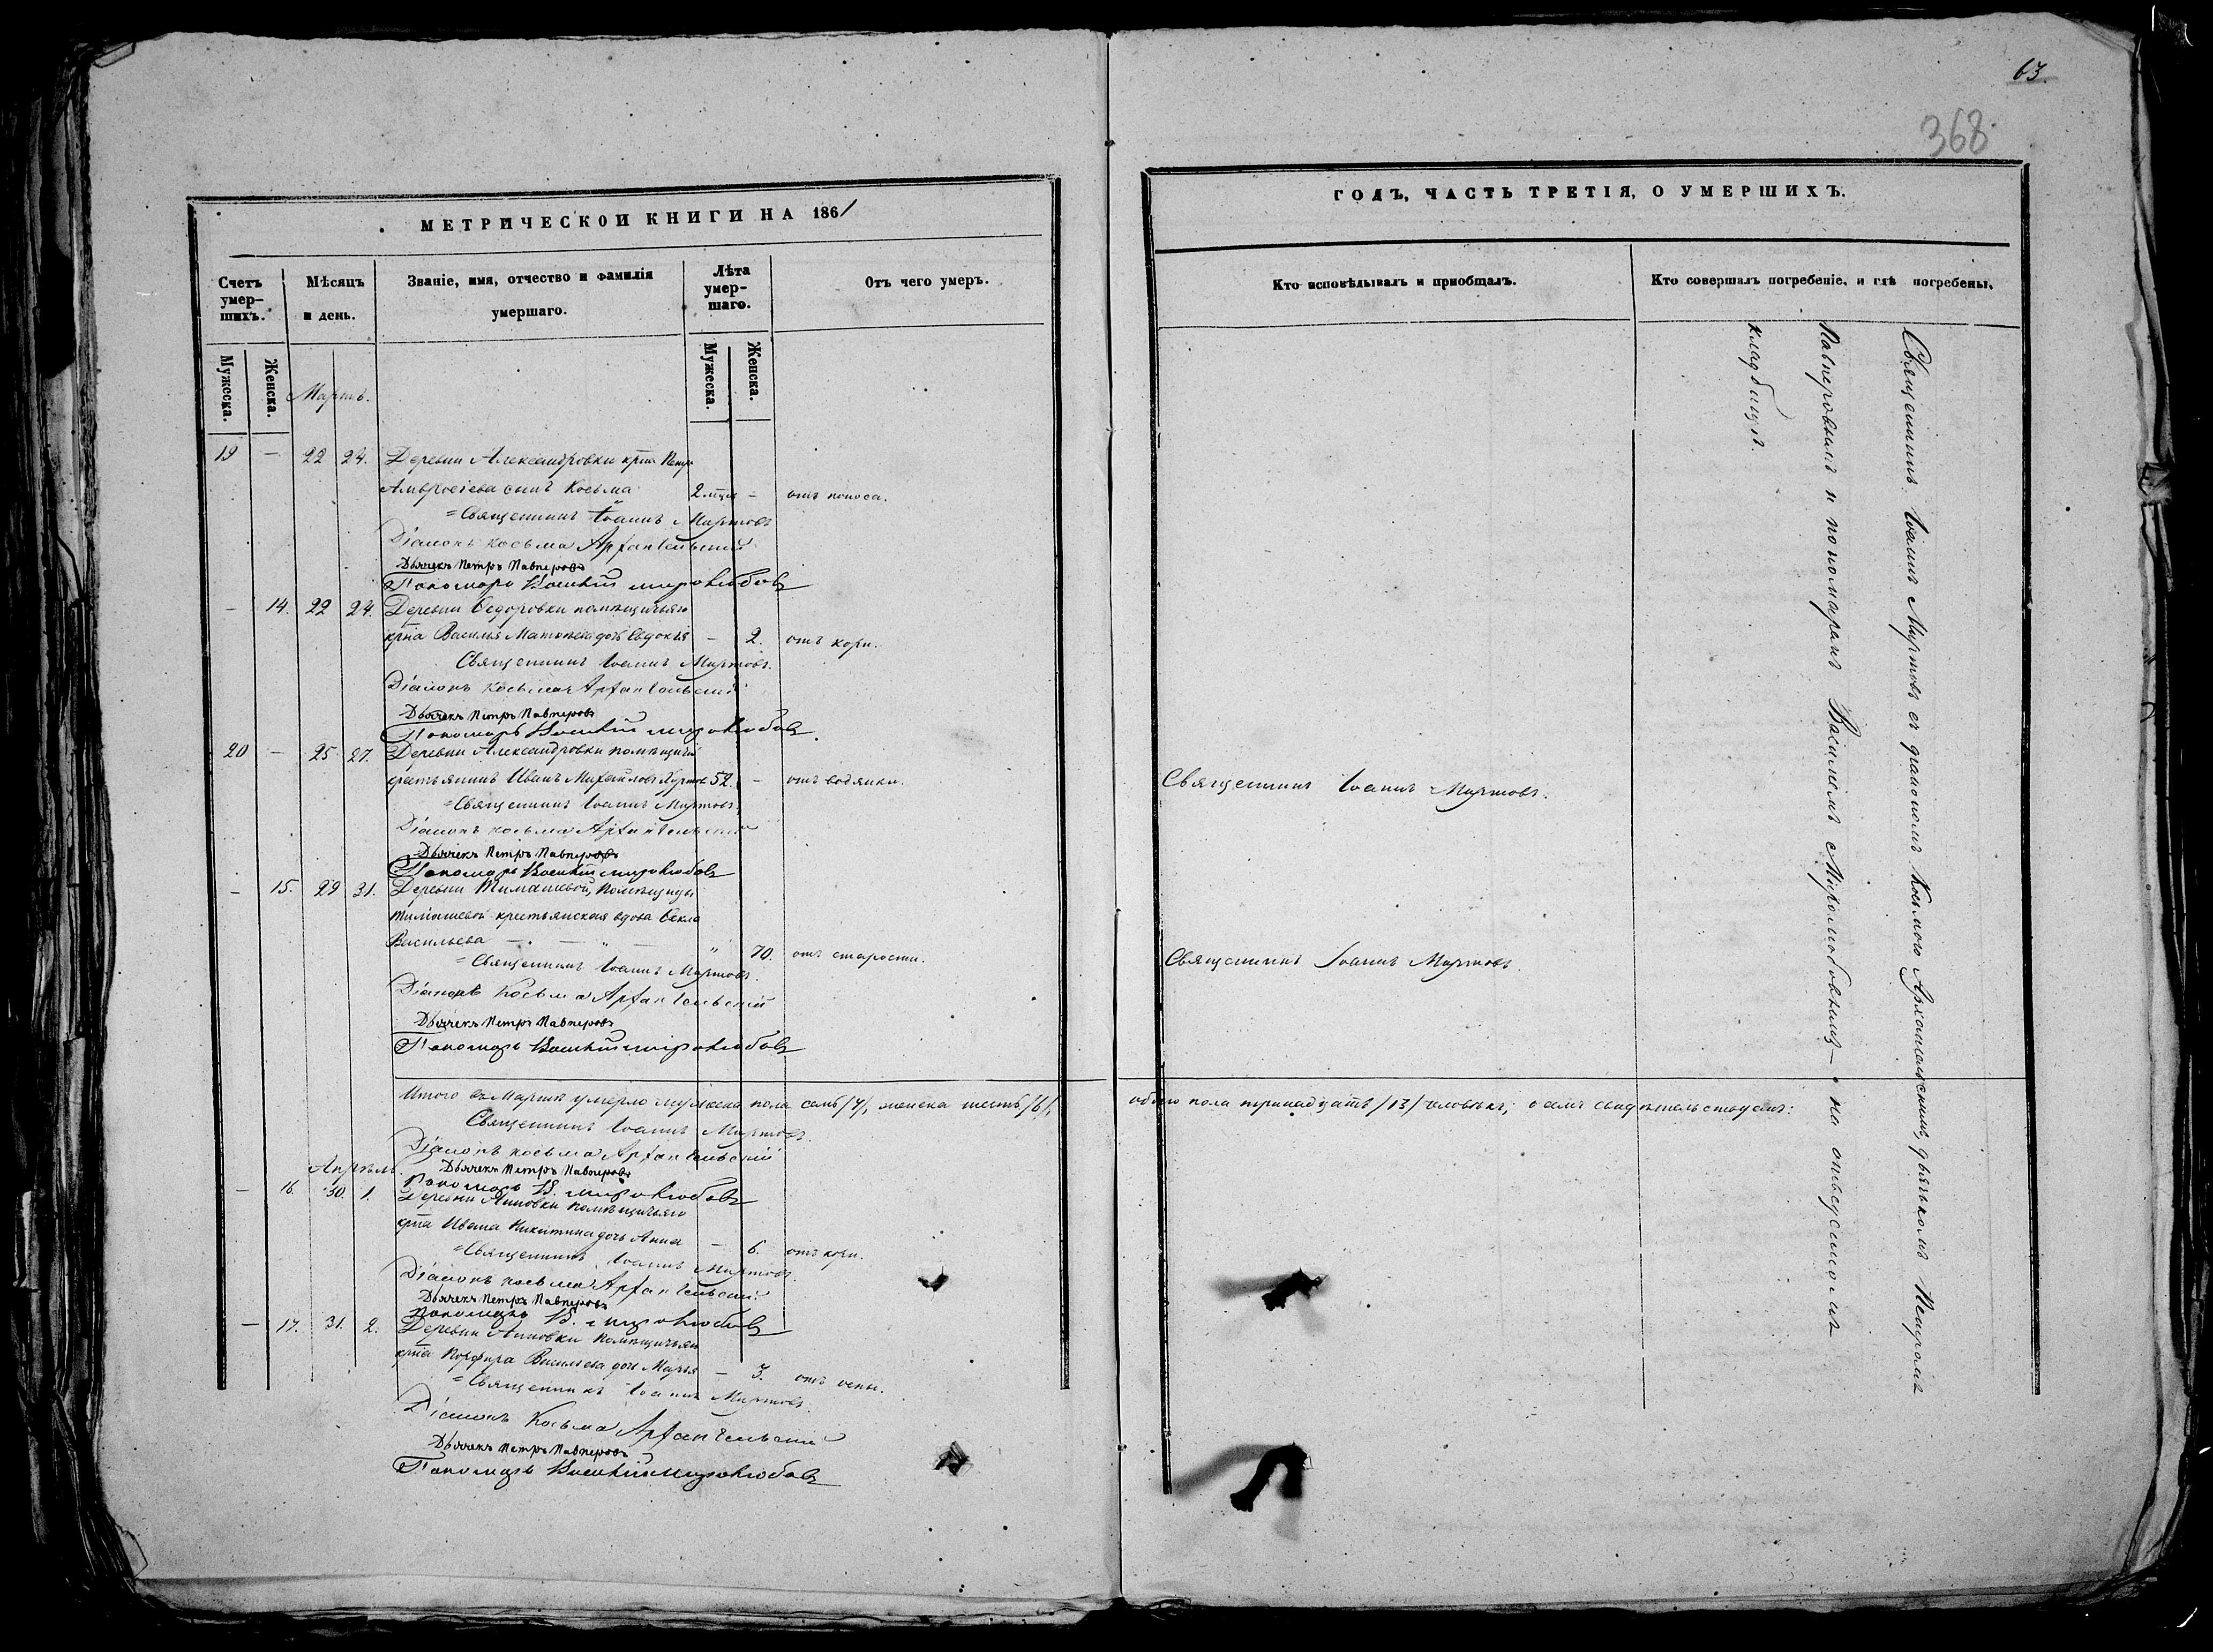 63.
368
МЕТРИЧЕСКОЙ КНИГИ НА 1861
ГОДЪ, ЧАСТЬ ТРЕТІЯ, О УМЕРШИХЪ.
Счетъ умер-шихъ.
Мѣсяцъ и день.
Званіе, имя, отчество и фамилія умершаго.
Лѣта умер-шаго.
Отъ чего умеръ.
Кто исповѣдывалъ и пріобщалъ.
Кто совершалъ погребеніе, и гдѣ погребены.
Мужеска.
Женска.
Мужеска.
Женска.
Мартъ.
19 — 22 24. Деревни Александровки крна Петра
Амвросіева сынъ Косьма 2 мцъ — отъ поноса.
=Священникъ Іоаннъ Миртовъ
Діаконъ Косьма Архангельскій
Дьячекъ Петръ Павперовъ
Пономарь Василій Миролюбовъ
— 14. 22 24. Деревни Ѳедоровки помѣщичьяго
крна Василья Матвѣева дочь Евдокія — 2. отъ кори.
Священникъ Іоаннъ Миртовъ.
Діаконъ Косьма Архангельскій
Дьячекъ Петръ Павперовъ
Пономарь Василій Миролюбовъ
20 — 25 27. Деревни Александровки помѣщичій
крестьянинъ Иванъ Михайловъ 52. — отъ водянки.
Священникъ Іоаннъ Миртовъ.
=Священникъ Іоаннъ Миртовъ
Діаконъ Косьма Архангельскій
Дьячекъ Петръ Павперовъ
Пономарь Василій Миролюбовъ
— 15. 29 31. Деревни Тимашевой, помѣщицы
Тимашевой крестьянская вдова Ѳекла
Васильева — " — " 70. отъ старости.
Священникъ Іоаннъ Миртовъ.
=Священникъ Іоаннъ Миртовъ.
Діаконъ Косьма Архангельскій
Дьячекъ Петръ Павперовъ
Пономарь Василій Миролюбовъ
Итого въ Мартѣ умерло мужеска пола семь /7/, женска шесть /6/, обоего пола тринадцать /13/ человѣкъ, о семъ свидѣтельствуемъ:
Священникъ Іоаннъ Миртовъ.
Діаконъ Косьма Архангельскій
Дьячекъ Петръ Павперовъ
Пономарь В. Миролюбовъ
Апрѣль.
— 16. 30. 1. Деревни Анновки помѣщичьяго
крна Ивана Никитина дочь Анна — 6. отъ кори.
=Священникъ Іоаннъ Миртовъ.
Діаконъ Косьма Архангельскій
Дьячекъ Петръ Павперовъ
Пономарь В. Миролюбовъ
— 17. 31. 2. Деревни Анновки помѣщичьяго
крна Порфира Васильева дочь Марья — 3. отъ оспы.
=Священникъ Іоаннъ Миртовъ.
Діаконъ Косьма Архангельскій
Дьячекъ Петръ Павперовъ
Пономарь Василій Миролюбовъ
Священникъ Іоаннъ Миртовъ съ діакономъ Косьмою Архангельскимъ, дьячкомъ Петромъ
Павперовымъ и пономаремъ Василіемъ Миролюбовымъ — на отведенномъ
кладбищѣ.